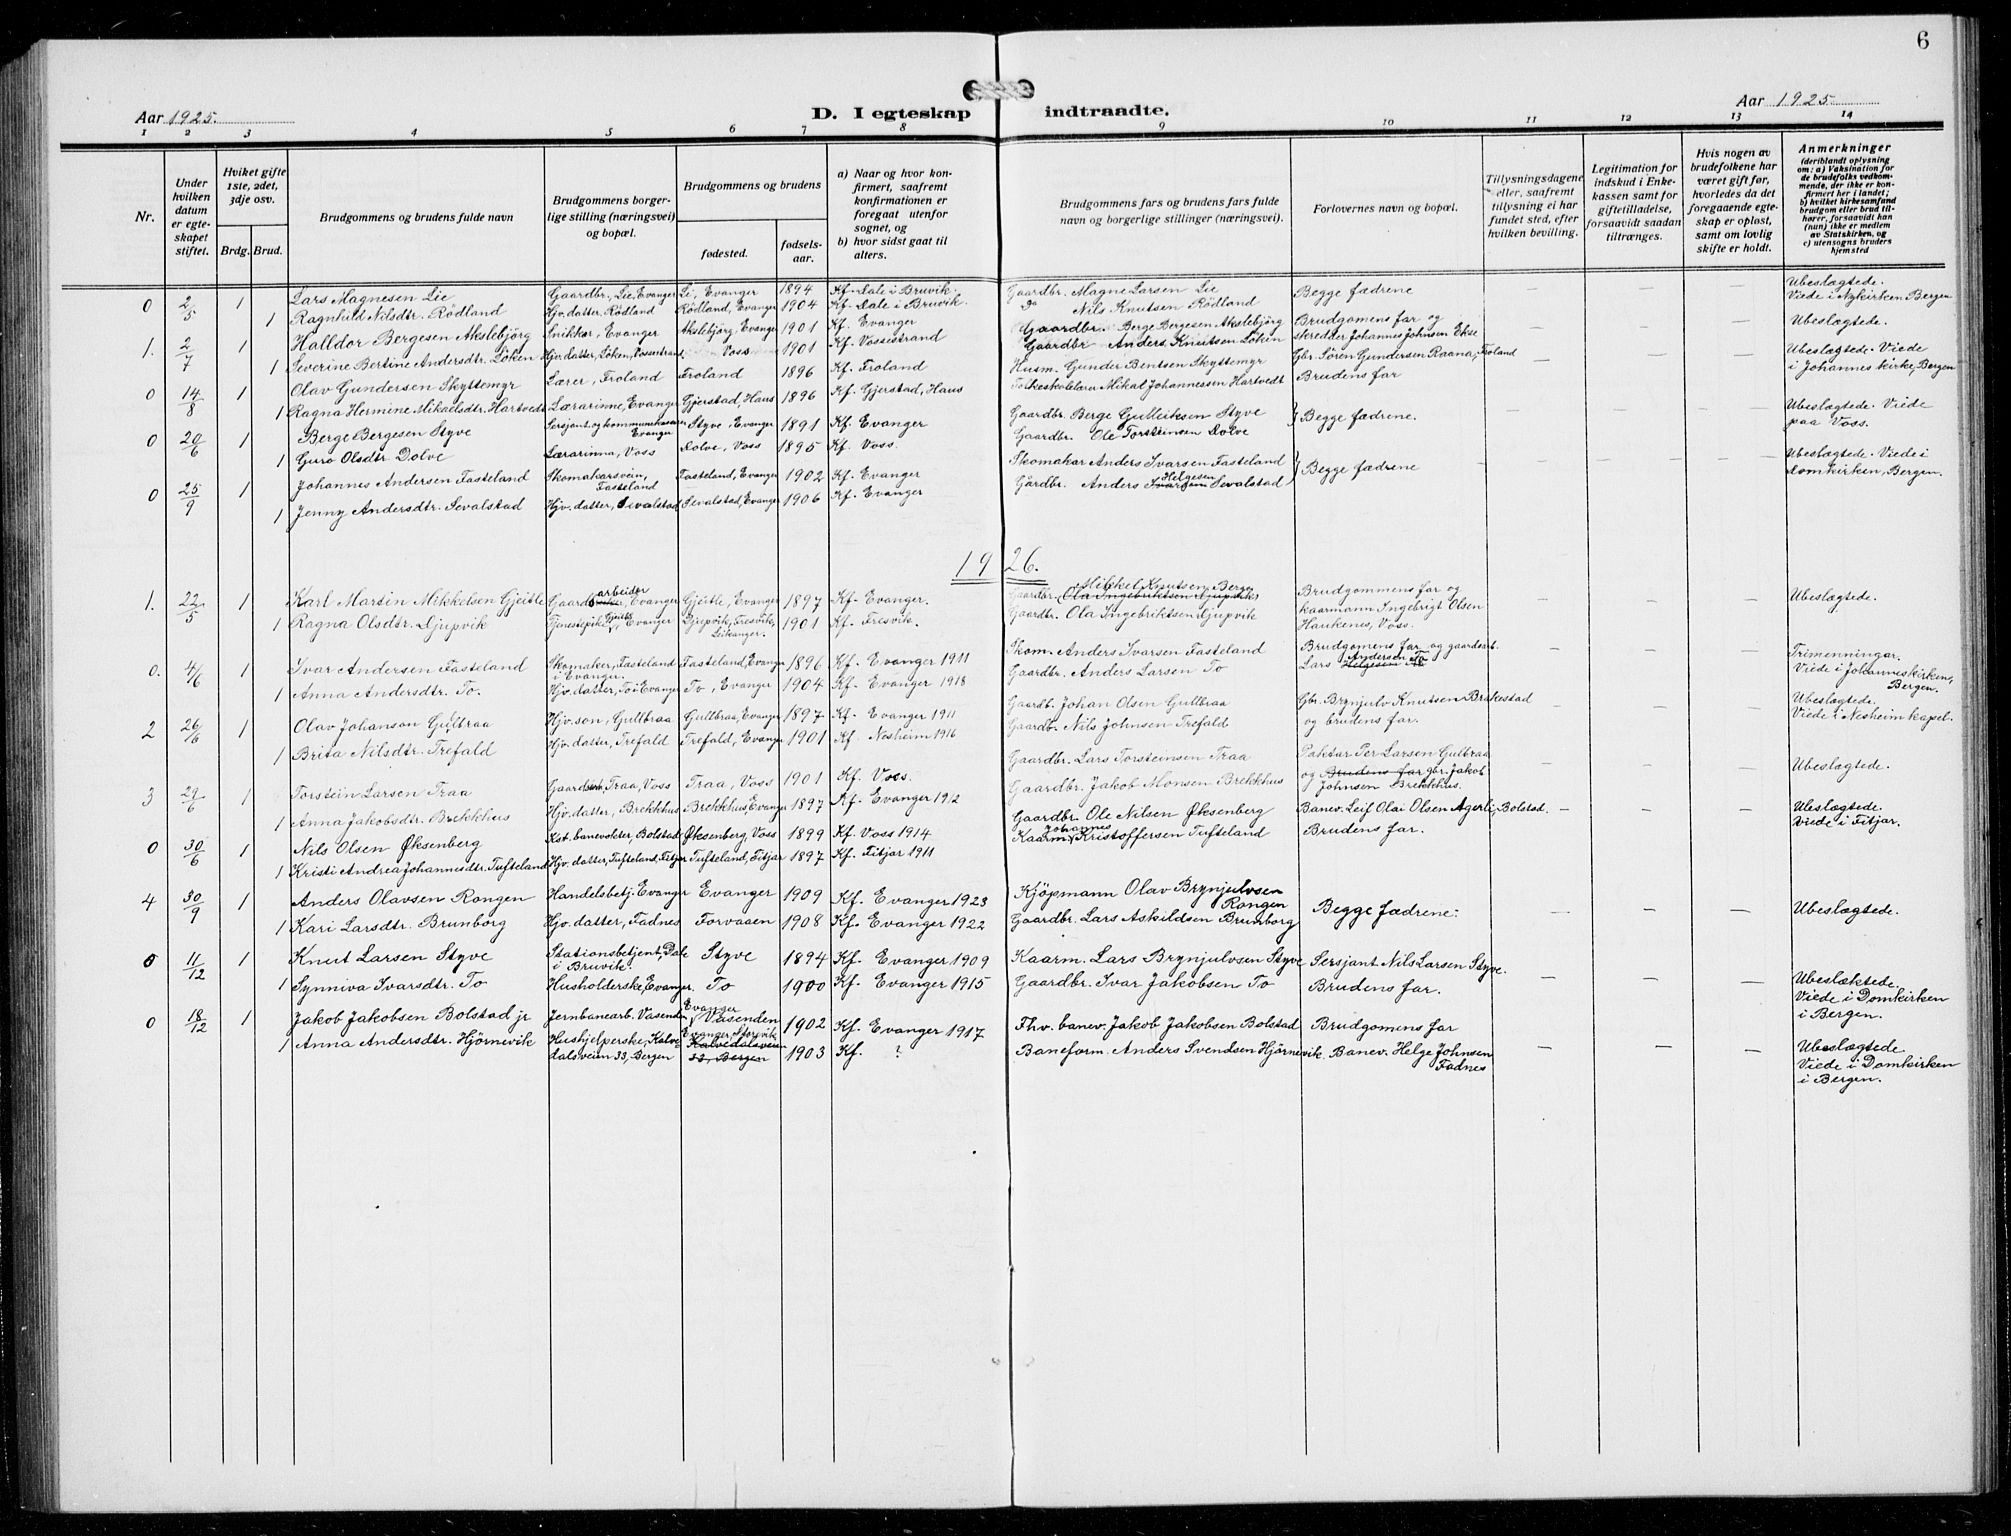 6
Aar 1925.
D. I egteskap indtraadte.
Aar 1925.
1 2 3 4 5 6 7 8 9 10 11 12 13 14
Nr.
Under hvilken datum er egteskapet stiftet.
Hviket gifte 1ste, 2det, 3dje osv.
Brdg. Brud.
Brudgommens og brudens fulde navn
Brudgommens borgerlige stilling (næringsvei) og bopæl.
Brudgommens og brudens
fødested.
fødselsaar.
a) Naar og hvor konfirmert, saafremt konfirmationen er foregaat utenfor sognet, og
b) hvor sidst gaat til alters.
Brudgommens fars og brudens fars fulde navn og borgerlige stillinger (næringsvei).
Forlovernes navn og bopæl.
Tillysningsdagene eller, saafremt tillysning ei har fundet sted, efter hvilken bevilling.
Legitimation for indskud i Enkekassen samt for giftetilladelse, forsaavidt saadan tiltrænges.
Hvis nogen av brudefolkene har været gift før, hvorledes da det foregaaende egteskap er opløst, samt om lovlig skifte er holdt.
Anmerkninger
(deriblandt oplysning om: a) Vaksination for de brudefolks vedkommende, der ikke er konfirmert her i landet; b) hvilket kirkesamfund brudgom eller brud tilhører, forsaavidt han (hun) ikke er medlem av Statskirken, og c) utensogns bruders hjemsted
0 2/5 1 Lars Magnesen Lie Gaardbr., Lie, Evanger Li, Evanger 1894 Kf. Dale i Bruvik. Gaardbr. Magne Larsen Lie Begge fædrene — — — Ubeslagtede. Viede i Nykirken Bergen
1 Ragnhild Nilsdtr. Rödland Hjv. datter, Rödland Rödland, Evanger 1904 Kf. Dale i Bruvik. Do Nils Knutsen Rödland
1. 2/7 1 Halldor Bergesen Akslebjörg Snikkar, Evanger Akslebjörg, Evanger 1901 Kf. Evanger Gaardbr. Berge Bergesen Akslebjörg Brudgomens far og skredder Johannes Johnsen Ekse — — — Ubeslægtede.
1 Severine Bertine Andersdtr. Löken Hjv. datter, Löken, Vossestrand Voss 1901 Kf. Vossestrand Gaardbr Anders Knutsen Löken
0 14/8 1 Olav Gundersen Skyttemyr Lærer, Froland Froland 1896 Kf. Froland Husm. Gunder Bentsen Skyttemyr Gbr. Sören Gundersen Raana, Froland — — — Ubeslægtede. Viede i Johannes kirke, Bergen
1 Ragna Hermine Mikaelsdtr. Hartvedt Lærarinne, Evanger Gjerstad, Haus 1896 Kf. Gjerstad, Haus Folkeskolelærer Mikal Johannessen Hartvedt Brudens far
0 20/6 1 Berge Bergesen Styve Sersjant og kommunekasserer Evanger Styve, Evanger 1891 Kf. Evanger Gaardbr. Berge Gulleiksen Styve } Begge fædrene. — — — Ubeslægtede. Viede paa Voss.
1 Guro Olsdtr. Dolve Lærarinna, Voss Dolve, Voss 1895 Kf. Voss. Gaardbr. Ole Torsteinsen Dolve
0 25/9 1 Johannes Andersen Fasteland Skomakarsvein, Fasteland Fasteland, Evanger 1902 Kf. Evanger Skomakar Anders Ivarsen Fasteland } Begge fædrene — — — Ubeslægtede. Viede i Domkirken, Bergen.
1 Jenny Andersdtr. Sevalstad Hjv. datter, Sevalstad Sevalstad, Evanger 1906 Kf. Evanger Gårdbr. Anders Ivarsen Helgesen Sevalstad
1926.
1. 22/5 1 Karl Martin Mikkelsen Gjeitle Gaardsarbeider, Evanger Gjeitle, Evanger 1897 Kf. Evanger. Gaardbr. (Ola Ingebriktsen Djupvik) Mikkel Knutsen Berger Brudgommens far og kaarmann Ingebrigt Olsen Haukenes, Voss. — — — Ubeslægtede.
1 Ragna Olsdtr. Djupvik Tjenestepike, Gjeitle, Evanger Djupvik, Fresvik, Leikanger. 1901 Kf. Fresvik. Gaardtr. Ola Ingebriktsen Djupvik
0. 4/6 1 Ivar Andersen Fasteland Skomaker, Fasteland i Evanger. Fasteland, Evanger 1896 Kf. Evanger 1911 Skom. Anders Ivarsen Fasteland Brudgomens far og gaardsarb. Lars Helgesen Andersen To — — — Trimenningar. Viede i Johanneskirken, Bergen.
1 Anna Andersdtr. To. Hjv. datter, To i Evanger To, Evanger 1904 Kf. Evanger 1918 Gaardbr. Anders Larsen To
2 26/6 1 Olav Johanson Gullbraa Hjv. son, Gullbraa Gullbraa, Evanger 1897 Kf. Evanger 1911 Gaardb. Johan Olsen Gullbraa Gbr. Brynjulv Knutsen Brakestad og brudens far. — — — Ubeslægtede. Viede i Nesheim kapel.
1 Brita Nilsdtr. Trefald Hjv. datter, Trefald Trefald, Evanger 1901 Kf. Nesheim 1916 Gaardbr. Nils Johnsen Trefald
3 29/6 1 Torstein Larsen Traa Gaardbr., Traa, Voss Traa, Voss 1901 Kf. Voss. Gaardbr. Lars Torsteinsen Traa Paktar Per Larsen Gulbraa og Brudens far gbr. Jakob Johnsen Brekkhus. — — — Ubeslægtede.
1 Anna Jakobsdtr. Brekkhus Hjv. datter, Brekkhus Brekkhus, Evanger 1897 Kf. Evanger 1912 Gaardbr. Jakob Monsen Brekkhus
0 30/6 1 Nils Olsen Øksenberg Kst. banevokter, Bolstad Øksenberg, Voss 1899 Kf. Voss 1914 Gaardbr. Ole Nilsen Øksenberg Banev. Leif Olai Olsen Agerli, Bolstad. — — — Ubeslægtede. Viede i Fitjar.
1 Kristi Andrea Johannesdtr. Tufteland Hjv. datter, Tufteland, Fitjar Tufteland, Fitjar 1897 Kf. Fitjar 1911 Kaarm. Johannes Kristoffersen Tufteland Brudens far.
4 30/9 1 Anders Olavsen Rongen Handelsbetj. Evanger Evanger 1909 Kf. Evanger 1923 Kjöpmann Olav Brynjulvsen Rongen Begge fædrene. — — — Ubeslægtede.
1 Kari Larsdtr. Brunborg Hjv. datter, Fadnes Forvaaen 1908 Kf. Evanger 1922 Gaardbr. Lars Askildsen Brunborg
0 11/12 1 Knut Larsen Styve Stationsbetjent, Dale i Bruvik. Styve 1894 Kf. Evanger 1909 Kaarm. Lars Brynjulvsen Styve Sersjant Nils Larsen Styve. — — — Ubeslæktede. Viede i Domkirken i Bergen.
1 Synniva Ivarsdtr. To Husholderske, Evanger. To 1900 Kf. Evanger 1915 Gaardbr. Ivar Jakobsen To Brudens far.
0 18/12 1 Jakob Jakobsen Bolstad jr Jernbanearb. Vasenden Evanger Vasenden 1902 Kf. Evanger 1917 Fhv. banev. Jakob Jakobsen Bolstad Brudgomens far — — — Ubeslægtede. Viede i Domkirken i Bergen.
1 Anna Andersdtr. Hjörnevik Hushjelperske, Kalvedalsveien 33, Bergen Evanger, Storvik Kalvedalsveien 33, Bergen 1903 Kf. ? Baneform. Anders Svendsen Hjörnevik. Banev. Helge Johnsen Fadnes